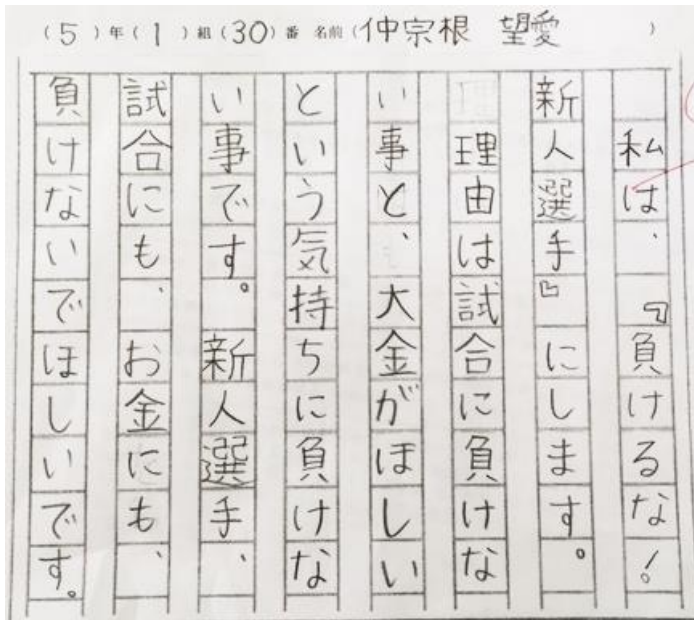 (5)年(1)組(30)番 名前(仲宗根 望愛)
私は、『負けるな!
新人選手』にします。
理由は試合に負けな
い事と、大金がほしい
という気持ちに負けな
い事です。新人選手、
試合にも、お金にも、
負けないでほしいです。